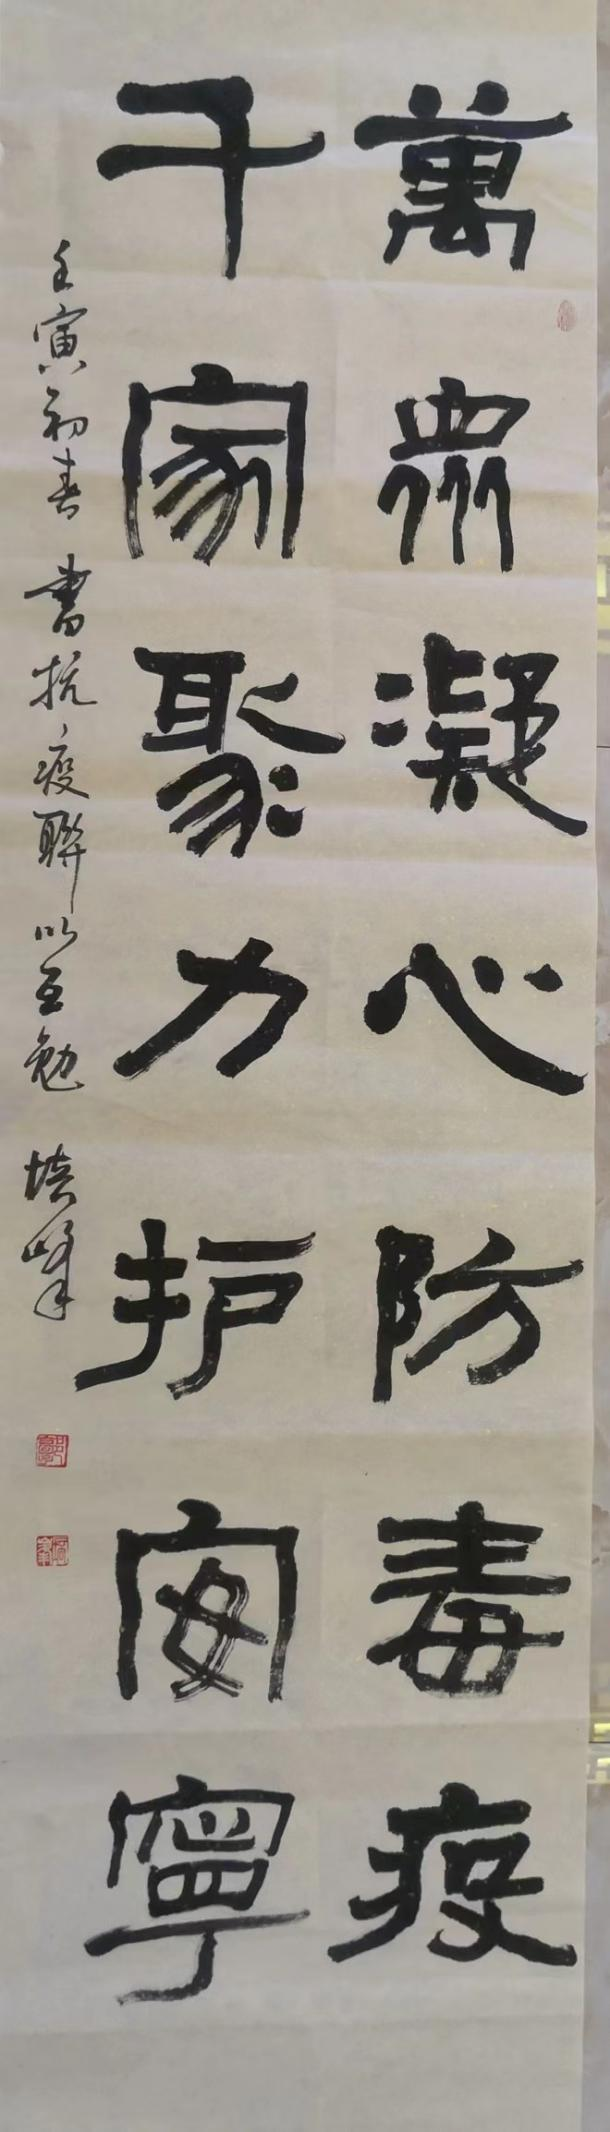 萬衆凝心防毒疫
千家聚力护安寧
壬寅初春 書抗疫聯以互勉 培峰